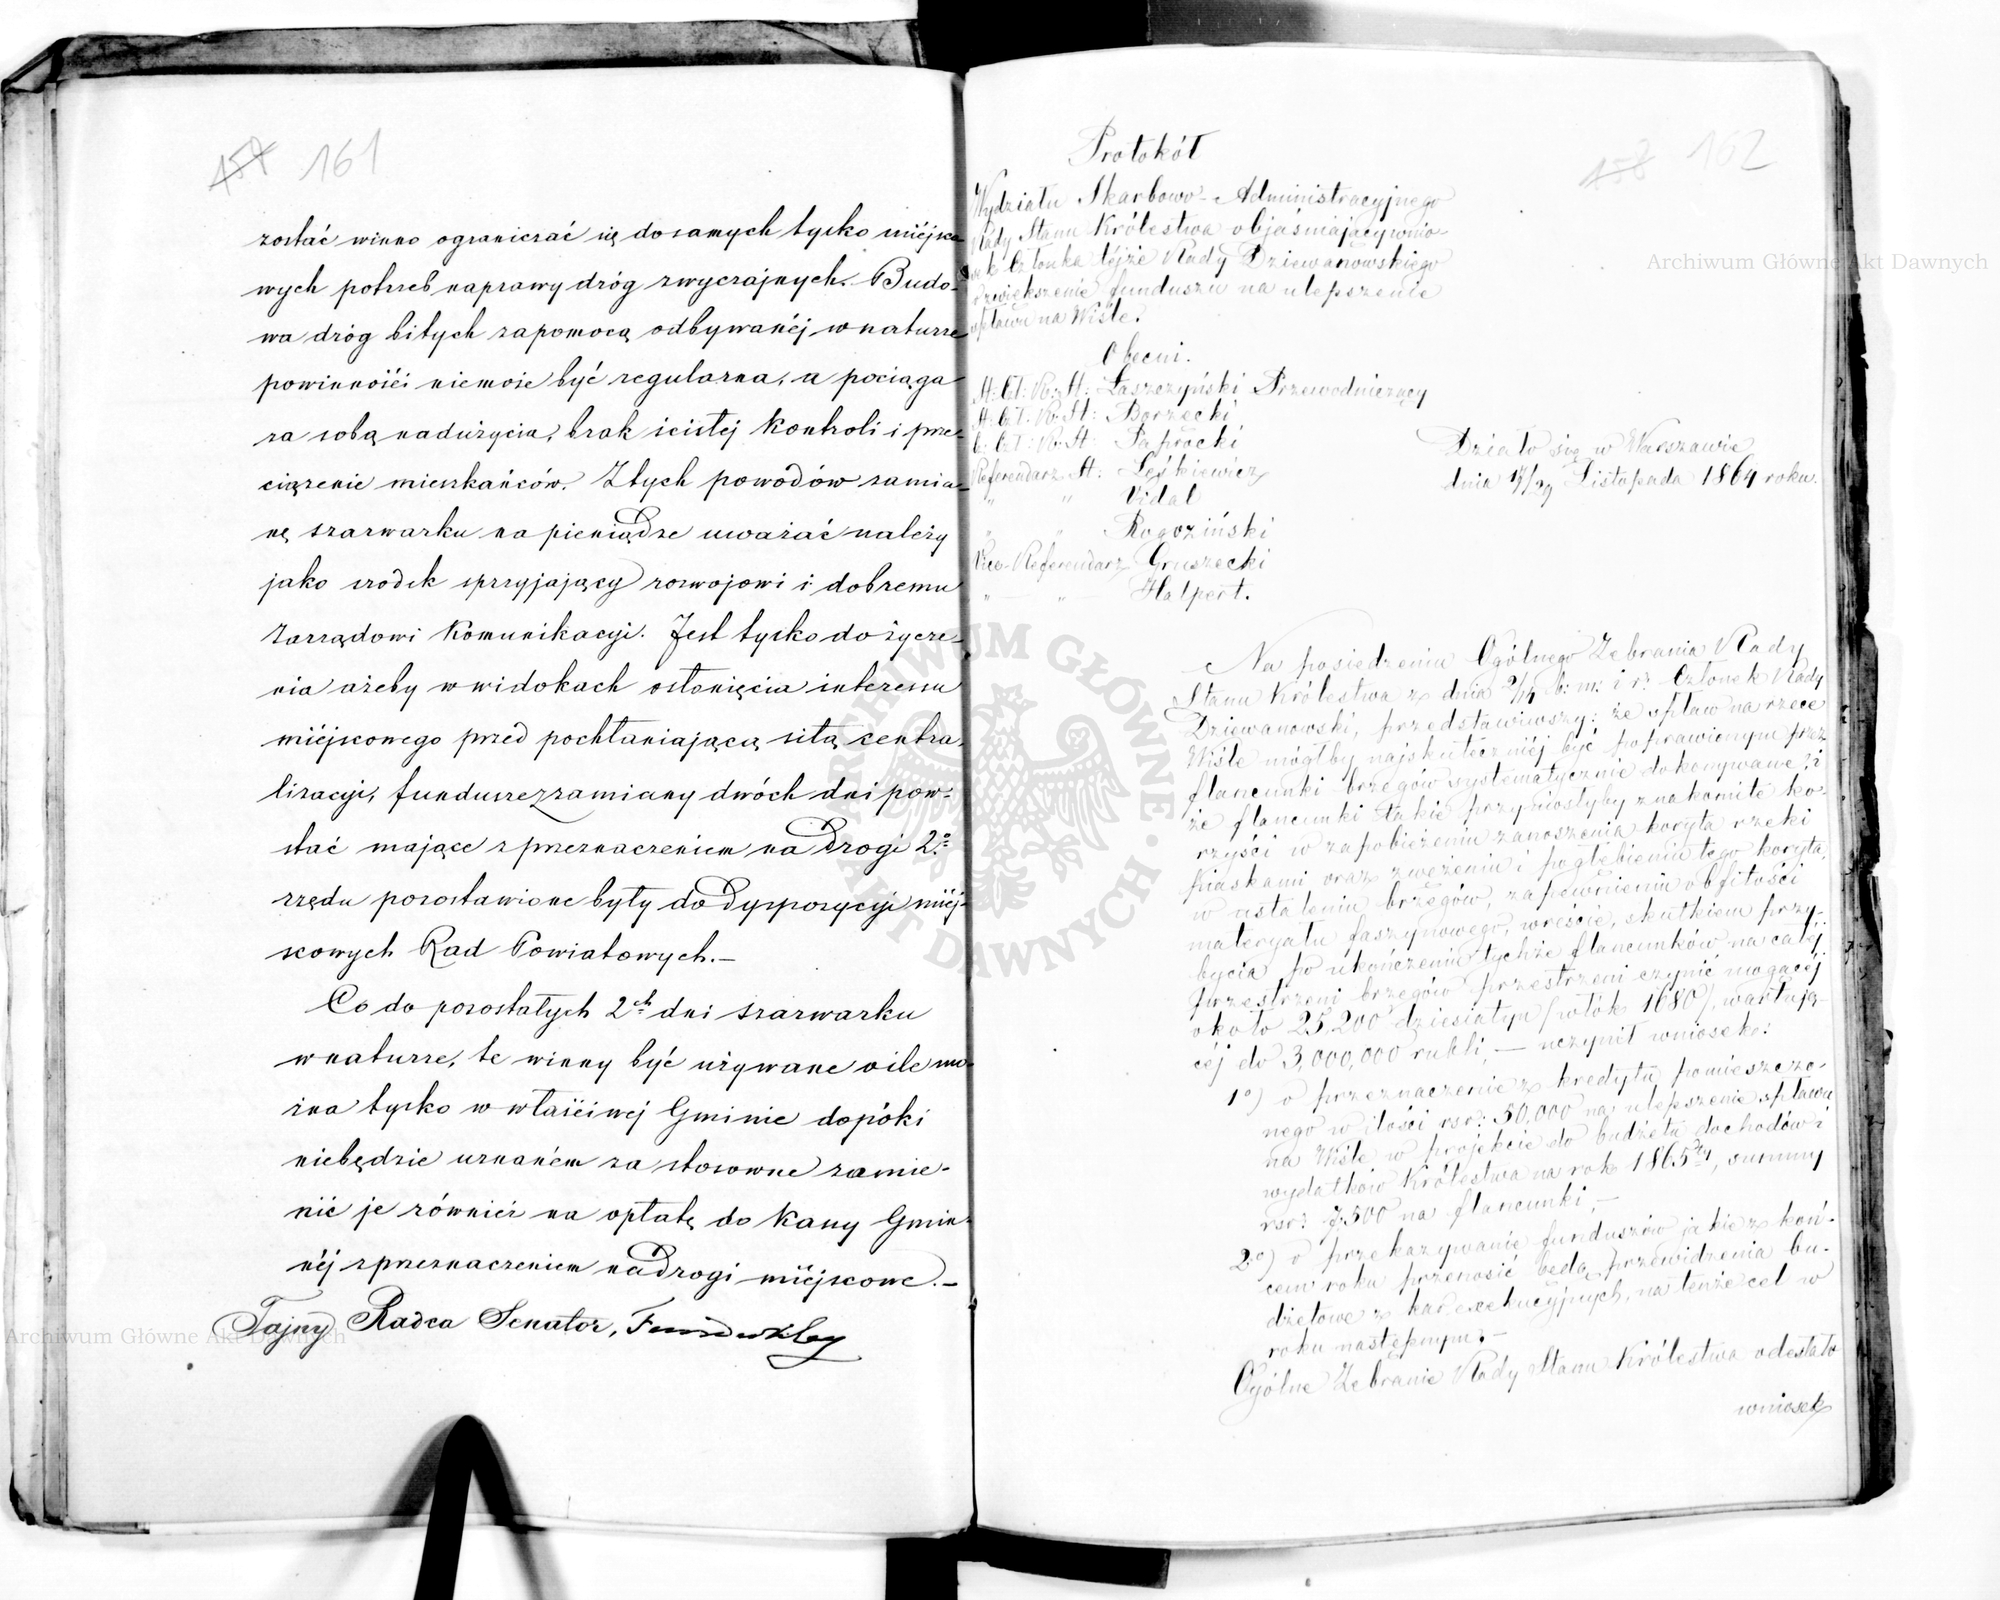 161
zostać winno ograniczać się do samych tylko miéjsco-
wych potrzeb naprawy dróg zwyczajnych. Budo-
wa dróg bitych zapomocą odbywanéj w naturze
powinności niemoże być regularna, a pociąga
za sobą nadużycia, brak ścisłéj kontroli i prze-
ciążenie mieszkańców. Z tych powodów zamia-
nę szarwarku na pieniądze uważać należy
jako środek sprzyjający rozwojowi i dobremu
Zarządowi Komunikacyi. Jest tylko do życze-
nia ażeby w widokach osłonięcia interesu
miéjscowego przed pochłaniającą siłą centra-
lizacyi, fundusze z zamiany dwóch dni pow-
stać mające z przeznaczeniem na Drogi 2º
rzędu pozostawione były do Dyspozycyi miéj-
scowych Rad Powiatowych.—
Co do pozostałych 2ch dni szarwarku
w naturze, te winny być używane o ile mo-
żna tylko w właściwéj Gminie dopóki
niebędzie uznaném za stosowne zamie-
nić je również na opłatę do Kassy Gmin-
néj z przeznaczeniem na Drogi miéjscowe.—
Tajny Radca Senator, Fundukley
162
Protokół
Wydziału Skarbowo-Administracyjnego
Rady Stanu Królestwa objaśniający wnio-
sek Członka téjże Rady Dziewanowskiego
zwiększenie funduszu na ulepszenie
spławu na Wiśle.
Obecni.
St: Cł: R: St: Łaszczyński Przewodniczący
St: Cł: R: St: Borzęcki
C: Cł: R: St: Paprocki
Referendarz St: Leśkiewicz
" " Vidal
" " Rogoziński
Vice-Referendarz Gruszecki
" " Halpert.
Działo się w Warszawie
dnia 17/29 Listopada 1864 roku.
Na posiedzeniu Ogólnego Zebrania Rady
Stanu Królestwa z dnia 2/14 b: m: i r: Członek Rady
Dziewanowski, przedstawiwszy: że spław na rzece
Wiśle mógłby najskuteczniéj być poprawionym przez
flancunki brzegów systematycznie dokonywane; i
że flancunki takie przyniosłyby znakomite ko-
rzyści w zapobieżeniu zanoszenia koryta rzeki
piaskami, oraz zwężeniu i pogłębieniu tego koryta,
w ustaleniu brzegów, zapewnieniu obfitości
materyału faszynowego, wreście, skutkiem przy-
bycia po ukończeniu tychże flancunków na całéj
przestrzeni brzegów przestrzeni czynić mogącéj
około 25,200 dziesiatyn (włók 1680), wartują-
céj do 3,000,000 rubli, — uczynił wniosek:
1º) o przeznaczenie z kredytu pomieszczo-
nego w ilości rsr: 50,000 na ulepszenie spławu
na Wiśle w projekcie do budżetu dochodów i
wydatków Królestwa na rok 1865ty, summy
rsr: 7,500 na flancunki,—
2º) o przekazywanie funduszów jakie z koń-
cem roku przenosić będą przewidzenia bu-
dżetowe z kar exekucyjnych, na tenże cel w
roku następnym.—
Ogólne Zebranie Rady Stanu Królestwa odesłało
wniosek
Archiwum Główne Akt Dawnych
Archiwum Główne Akt Dawnych
ARCHIWUM GŁÓWNE · AKT DAWNYCH ·